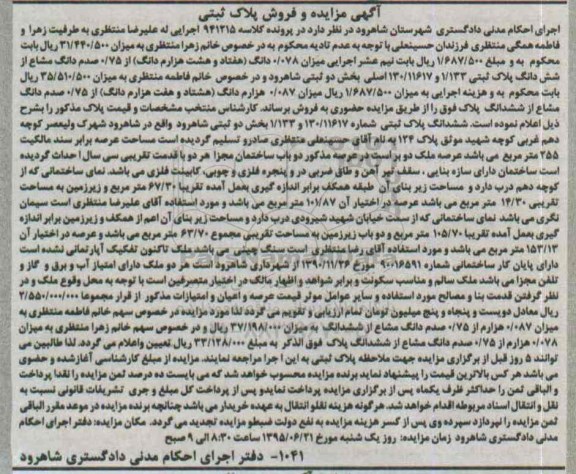 آگهی مزایده و فروش پلاک ثبتی
اجرای احکام مدنی دادگستری شهرستان شاهرود در نظر دارد در پرونده کلاسه ۹۴۱۳۱۵ اجرایی له علیرضا منتظری به طرفیت زهرا و
فاطمه همگی منتظری فرزندان حسینعلی با توجه به عدم تادیه محکوم به در خصوص خانم زهرا منتظری به میزان ۳۱/۴۴۰/۵۰۰ ریال بابت
محکوم به و مبلغ ۱/۶۸۷/۵۰۰ ریال بابت نیم عشر اجرایی میزان ۰/۰۷۸ دانگ (هفتاد و هشت هزارم دانگ) از ۰/۷۵ صدم دانگ مشاع از
شش دانگ پلاک ثبتی ۱/۱۳۳ و ۱۳۰/۱۱۶۱۷ اصلی بخش دو ثبتی شاهرود و در خصوص خانم فاطمه منتظری به میزان ۳۵/۵۱۰/۵۰۰ ریال
بابت محکوم به و هزینه اجرایی به میزان ۱/۶۸۷/۵۰۰ ریال میزان ۰/۰۸۷ هزارم دانگ (هشتاد و هفت هزارم دانگ) از ۰/۷۵ صدم دانگ
مشاع از ششدانگ پلاک فوق را از طریق مزایده حضوری به فروش برساند. کارشناس منتخب مشخصات و قیمت پلاک مذکور را بشرح
ذیل اعلام نموده است. ششدانگ پلاک ثبتی شماره ۱۳۰/۱۱۶۱۷ و ۱/۱۳۳ بخش دو ثبتی شاهرود واقع در شاهرود شهرک ولیعصر کوچه
دهم غربی کوچه شهید موثق پلاک ۱۲۴ به نام آقای حسینعلی منتظری صادر و تسلیم گردیده است مساحت عرصه برابر سند مالکیت
۲۵۵ متر مربع می باشد عرصه ملک دو بر است و در عرصه مذکور دو باب ساختمان مجزا هر دو با قدمت تقریبی سی سال احداث گردیده
است ساختمان دارای سازه بنایی ، سقف تیر آهن و طاق ضربی در و پنجره فلزی و چوبی، کابینت فلزی می باشد. نمای ساختمانی که از
کوچه دهم درب دارد و مساحت زیر بنای آن طبقه همکف برابر اندازه گیری بعمل آمده تقریبا ۶۷/۳۰ متر مربع و زیرزمین به مساحت
تقریبی ۱۴/۳۰ متر مربع می باشد عرصه در اختیار آن ۱۰۱/۸۷ متر مربع می باشد و مورد استفاده آقای علیرضا منتظری است سیمان
نگری می باشد نمای ساختمانی که از سمت خیابان شهید شیرودی درب دارد و مساحت زیر بنای آن اعم از همکف و زیرزمین برابر اندازه
گیری بعمل آمده تقریبا ۱۰۵/۷۰ متر مربع و دو باب زیرزمین به مساحت تقریبی مجموع ۶۳/۷۰ متر مربع می باشد و عرصه در اختیار آن
۱۵۳/۱۳ متر مربع می باشد و مورد استفاده آقای رضا منتظری است سنگ پلاک می باشد ملک تاکنون تفکیک آپارتمانی نشده است
دارای پایان کار ساختمانی شماره ۹۰۰۱۶۵۹۱ مورخ ۱۳۹۰/۱۱/۲۶ از شهرداری شاهرود است هر دو ملک دارای امتیاز آب و برق و گاز و
تلفن مجزا می باشد ملک سالم و مناسب سکونت و برابر شواهد و اظهار مالک در اختیار متصرفین است با توجه به محل وقوع ملک و در
نظر گرفتن قدمت بنا و مصالح مورد استفاده و سایر عوامل موثر قیمت عرصه و اعیان و امتیازات مذکور از قرار مجموعا ۲/۵۵۰/۰۰۰/۰۰۰
ریال معادل دویست و پنجاه و پنج میلیون تومان تمام ارزیابی و تقویم می گردد لذا مورد مزایده در خصوص سهم خانم فاطمه منتظری به
میزان ۰/۰۸۷ هزارم از ۰/۷۵ صدم دانگ مشاع از ششدانگ به میزان ۳۷/۱۹۸/۰۰۰ ریال و در خصوص سهم خانم زهرا منتظری به میزان
۰/۰۷۸ هزارم از ۰/۷۵ صدم دانگ مشاع از ششدانگ پلاک فوق الذکر به مبلغ ۳۳/۱۲۸/۰۰۰ ریال تعیین و اعلام می گردد. لذا طالبین می
توانند ۵ روز قبل از برگزاری مزایده جهت ملاحظه پلاک ثبتی به این اجرا مراجعه نمایند. مزایده از مبلغ کارشناسی آغاز شده و حضوری
می باشد هر کس بالاترین قیمت را پیشنهاد نماید برنده مزایده محسوب خواهد شد که می بایست ده درصد ثمن مزایده را نقدا پرداخت
و الباقی ثمن را حداکثر ظرف یکماه پس از برگزاری مزایده پرداخت نماید و پس از پرداخت کل مبلغ و جری تشریفات قانونی نسبت به
نقل و انتقال اسناد مربوطه اقدام خواهد شد. هرگونه هزینه نقل و انتقال به عهده خریدار می باشد چنانچه برنده مزایده در موعد مقرر الباقی
ثمن مزایده را نپردازد سپرده وی پس از کسر هزینه مزایده به نفع دولت ضبط و مزایده تجدید می گردد. مکان مزایده: دفتر اجرای احکام
مدنی دادگستری شاهرود زمان مزایده: روز یک شنبه مورخ ۱۳۹۵/۰۶/۲۱ ساعت ۸:۳۰ الی ۹ صبح
۱۰۴۱- دفتر اجرای احکام مدنی دادگستری شاهرود